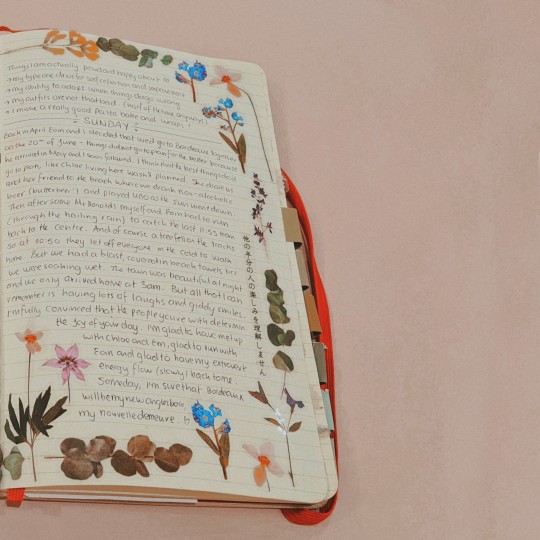 Things I am actually proud and happy about to
→ my type one drive for self reflection and improvement
→ my ability to adapt when things change wrong
→ my outfits are not that bad (half of the time anyways)
→ I make a really good pasta bake and wraps!
SUNDAY
Back in April Eoin and I decided that we'd go to Bordeaux together
on the 20th of June - things did not go to plan for the better because
he arrived in May and I soon followed. I think that the best things don't
go to plan, like Chloe living here wasn't planned. She drove us
and her friend to the beach where we drank non-alcoholic
beer (butterbeer!) and played uno as the sun went down.
Then after some McDonalds myself and Eoin had to run
(through the hailing rain) to catch the last 11:55 tram
back to the centre. And of course a tree fell on the tracks
so at 00:50 they let off everyone in the cold to walk
home. But we had a blast, covered in beach towels bcs
we were soaking wet. The town was beautiful at night
and we only arrived home at 3am. But all that I can
remember is having lots of laughs and giddy smiles.
I'm fully convinced that the people you're with determin
the joy of your day. I'm glad to have met up
with Chloe and Em, glad to run with
Eoin and glad to have my extrovert
energy flow (slowly) back to me.
Someday, I'm sure that Bordeaux
will be my new
my nouvelle demeure.
他の半分の人の楽しみを理解しません